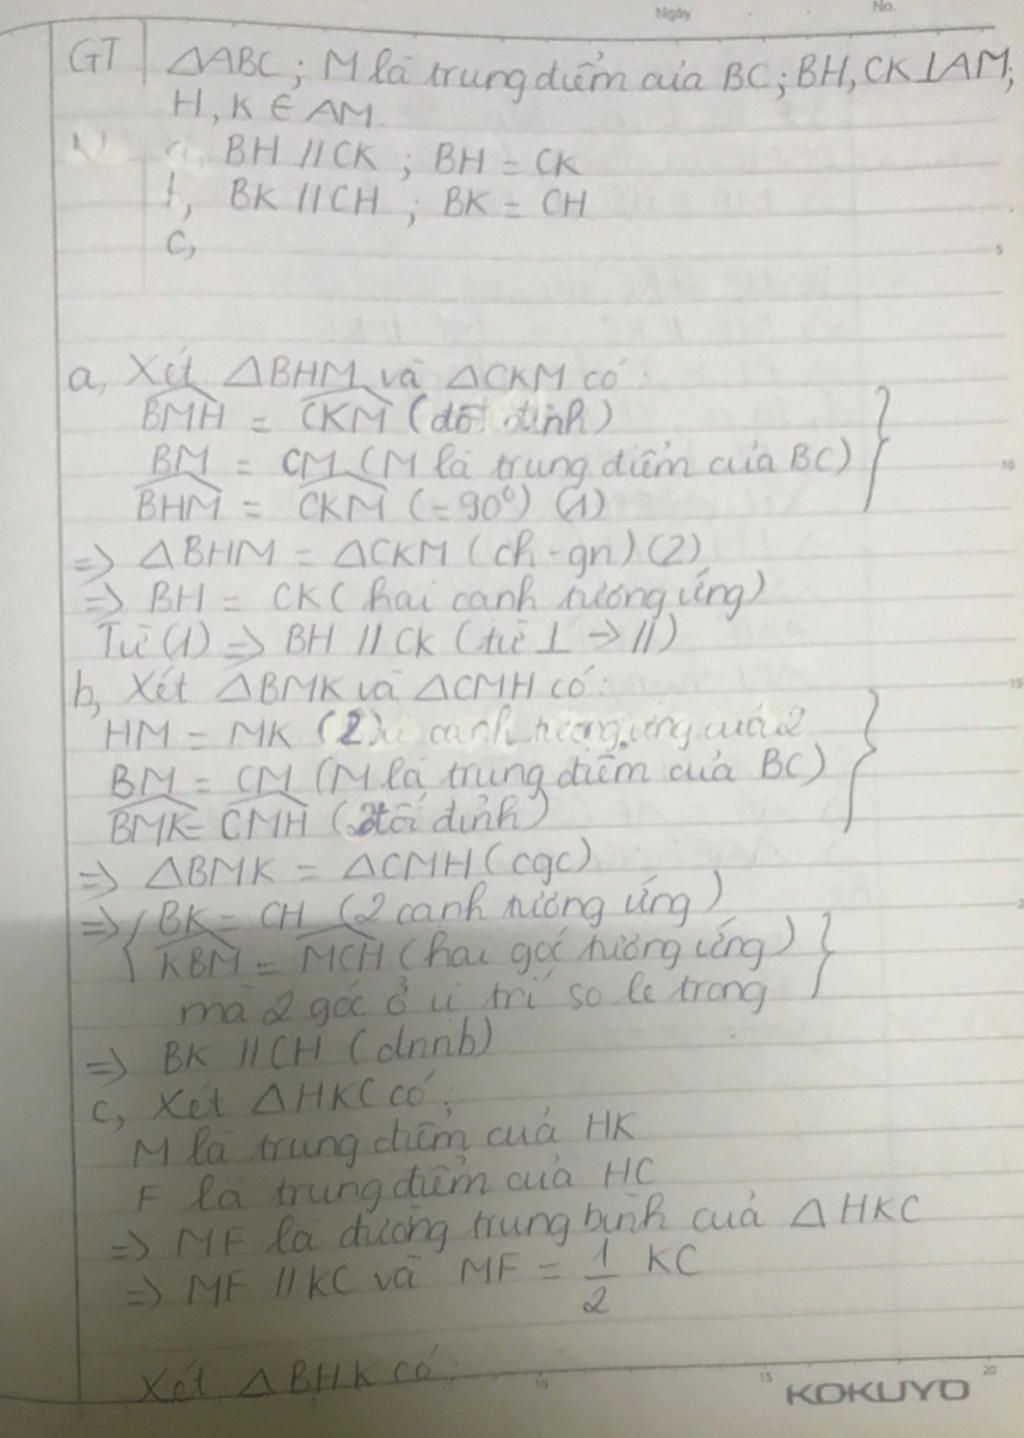 Ngày No.
GT ΔABC; M là trung điểm của BC; BH, CK⊥AM;
H, K ∈ AM
a, BH // CK ; BH = CK
b, BK // CH ; BK = CH
c,
5
a, Xét ΔBHM và ΔCKM có:
BMH = CKM (đối đỉnh)
BM = CM (M là trung điểm của BC)
10
BHM = CKM (= 90°) (1)
=> ΔBHM = ΔCKM (ch - gn) (2)
=> BH = CK (hai cạnh tương ứng)
Từ (1) => BH // CK (từ ⊥ -> //)
b, Xét ΔBMK và ΔCMH có:
15
HM = MK (2 cạnh tương ứng của 2
BM = CM (M là trung điểm của BC)
BMK = CMH (đối đỉnh)
=> ΔBMK = ΔCMH (cgc)
=> BK = CH (2 cạnh tương ứng)
KBM = MCH (hai góc tương ứng)
mà 2 góc ở vị trí so le trong
=> BK // CH (dhnb)
c, Xét ΔHKC có:
M là trung điểm của HK
F là trung điểm của HC
=> MF là đường trung bình của ΔHKC
=> MF // KC và MF = 1/2 KC
Xét ΔBHK có:
10 15 20
KOKUYO